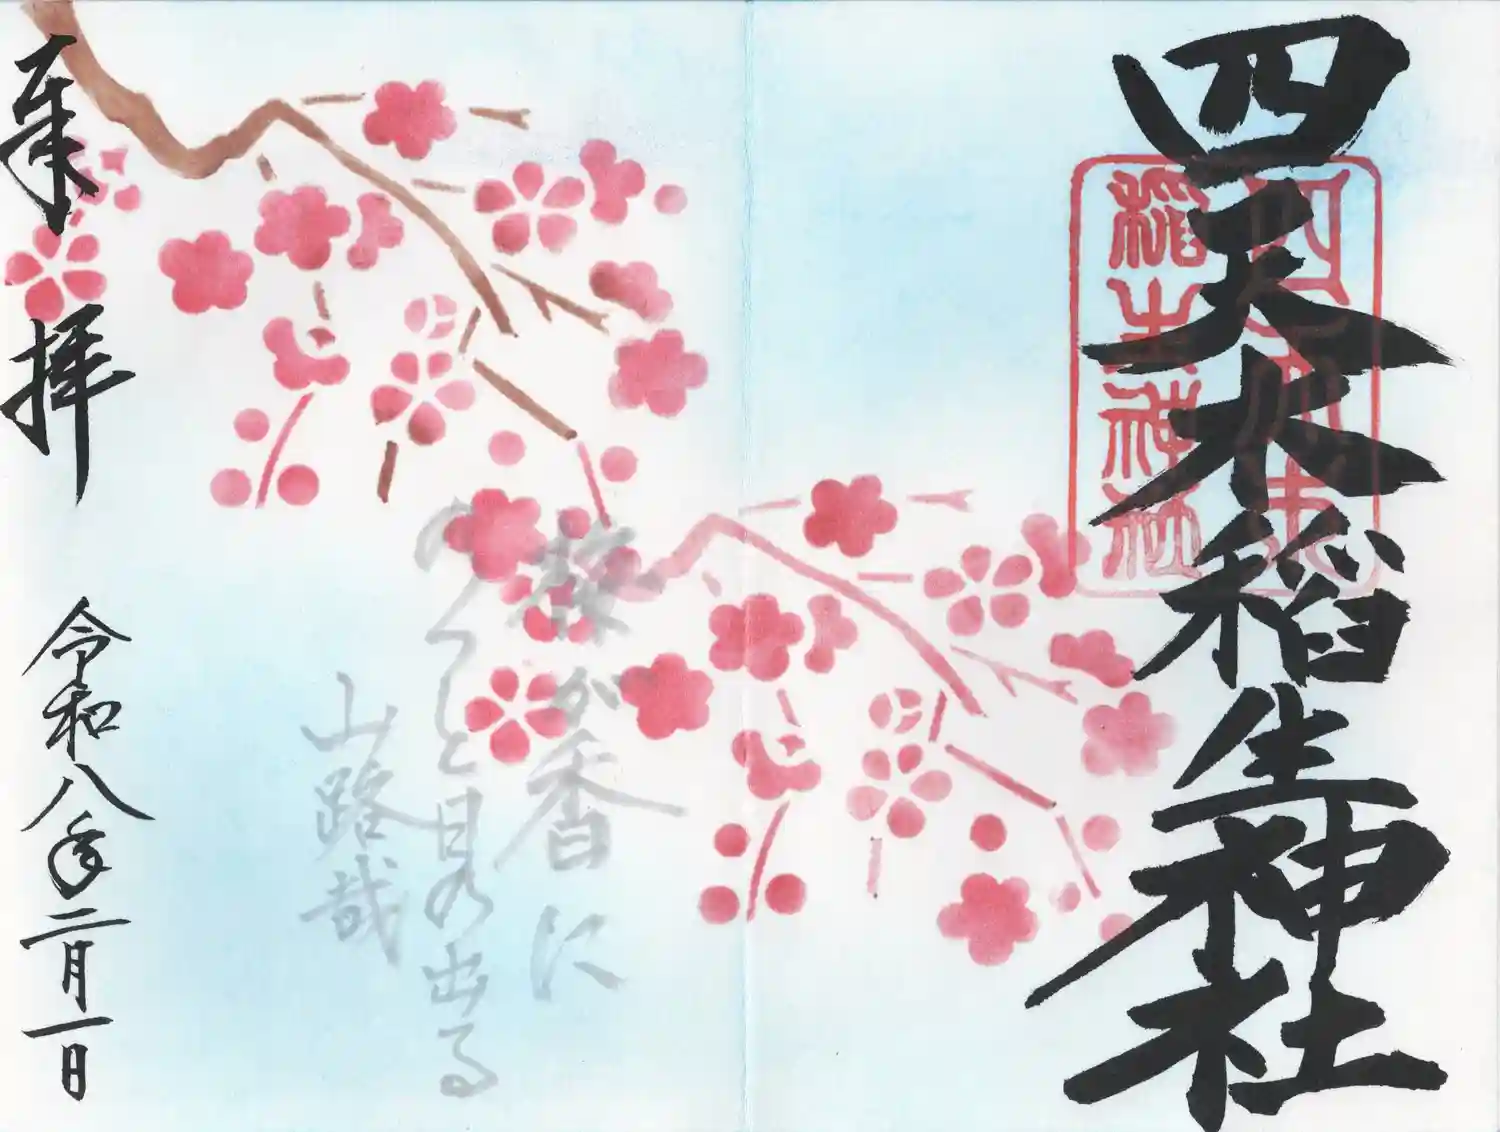 四天木稲生神社
稲生神社
梅が香に
のつと日の出る
山路哉
奉拝
令和八年二月一日